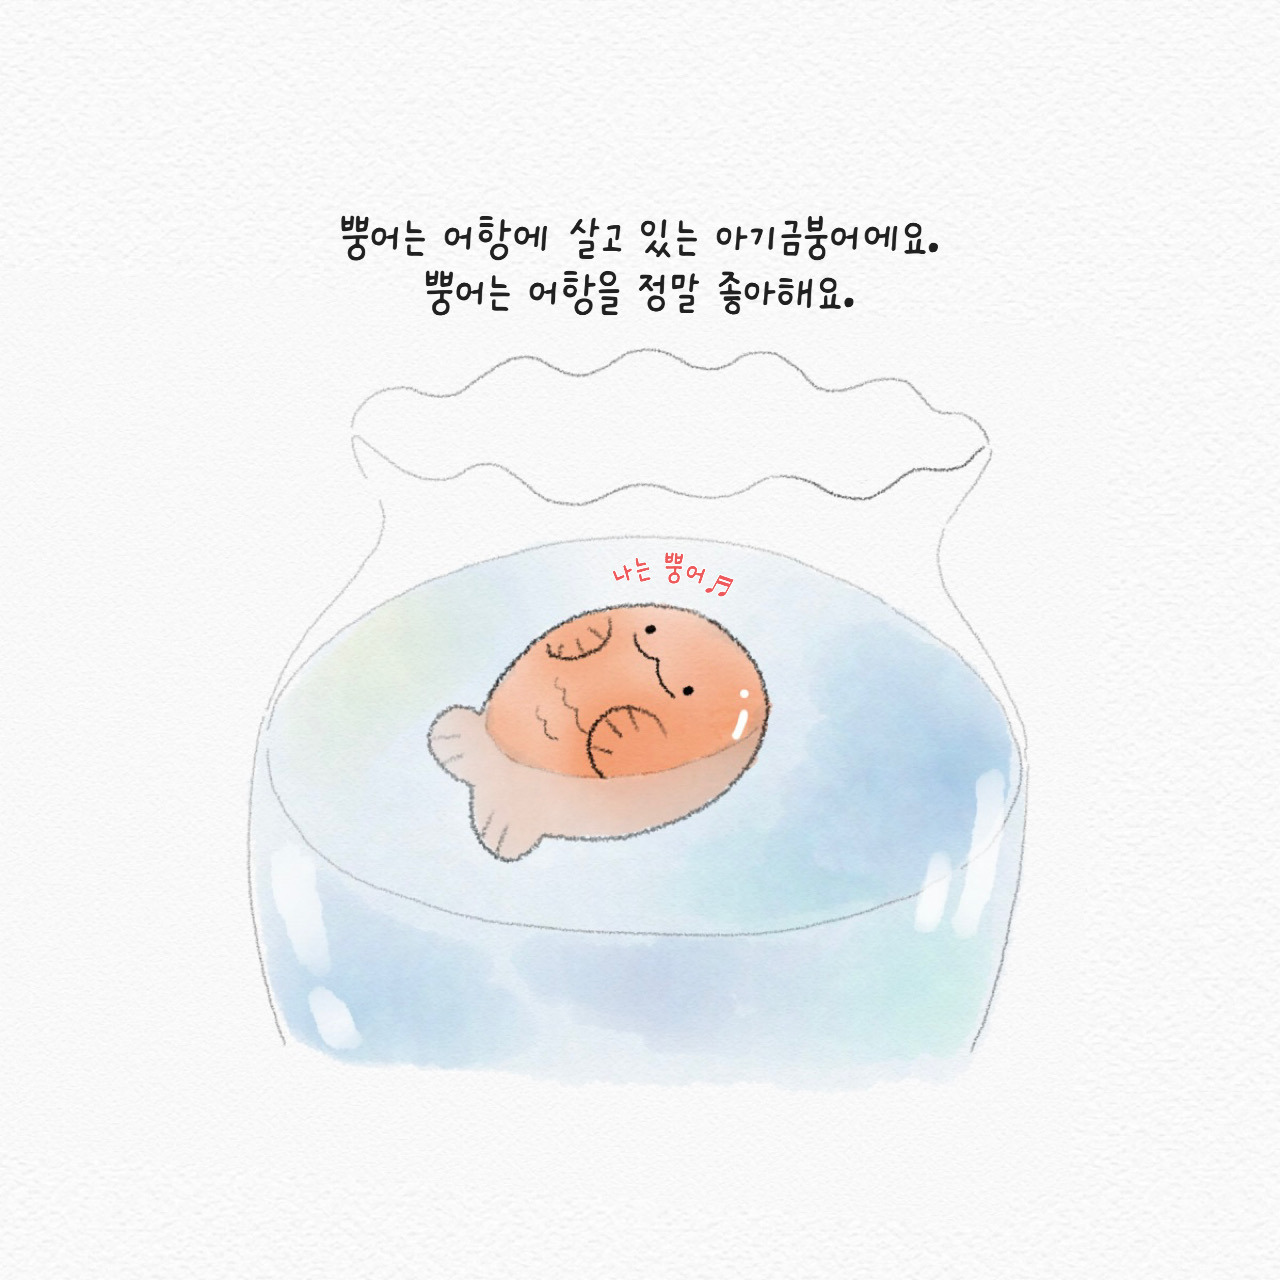 뿡어는 어항에 살고 있는 아기금붕어에요.
뿡어는 어항을 정말 좋아해요.
나는 뿡어♬